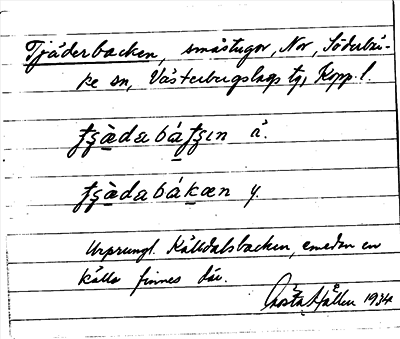 Tjäderbacken, småstugor, Nor, Söderbär-
ke sn, Västerbergslags tg, Kopp. l.
ä.
y.
Ursprungl. Källdalsbacken, emedan en
källa finnes där.
Gösta Hållen 1934